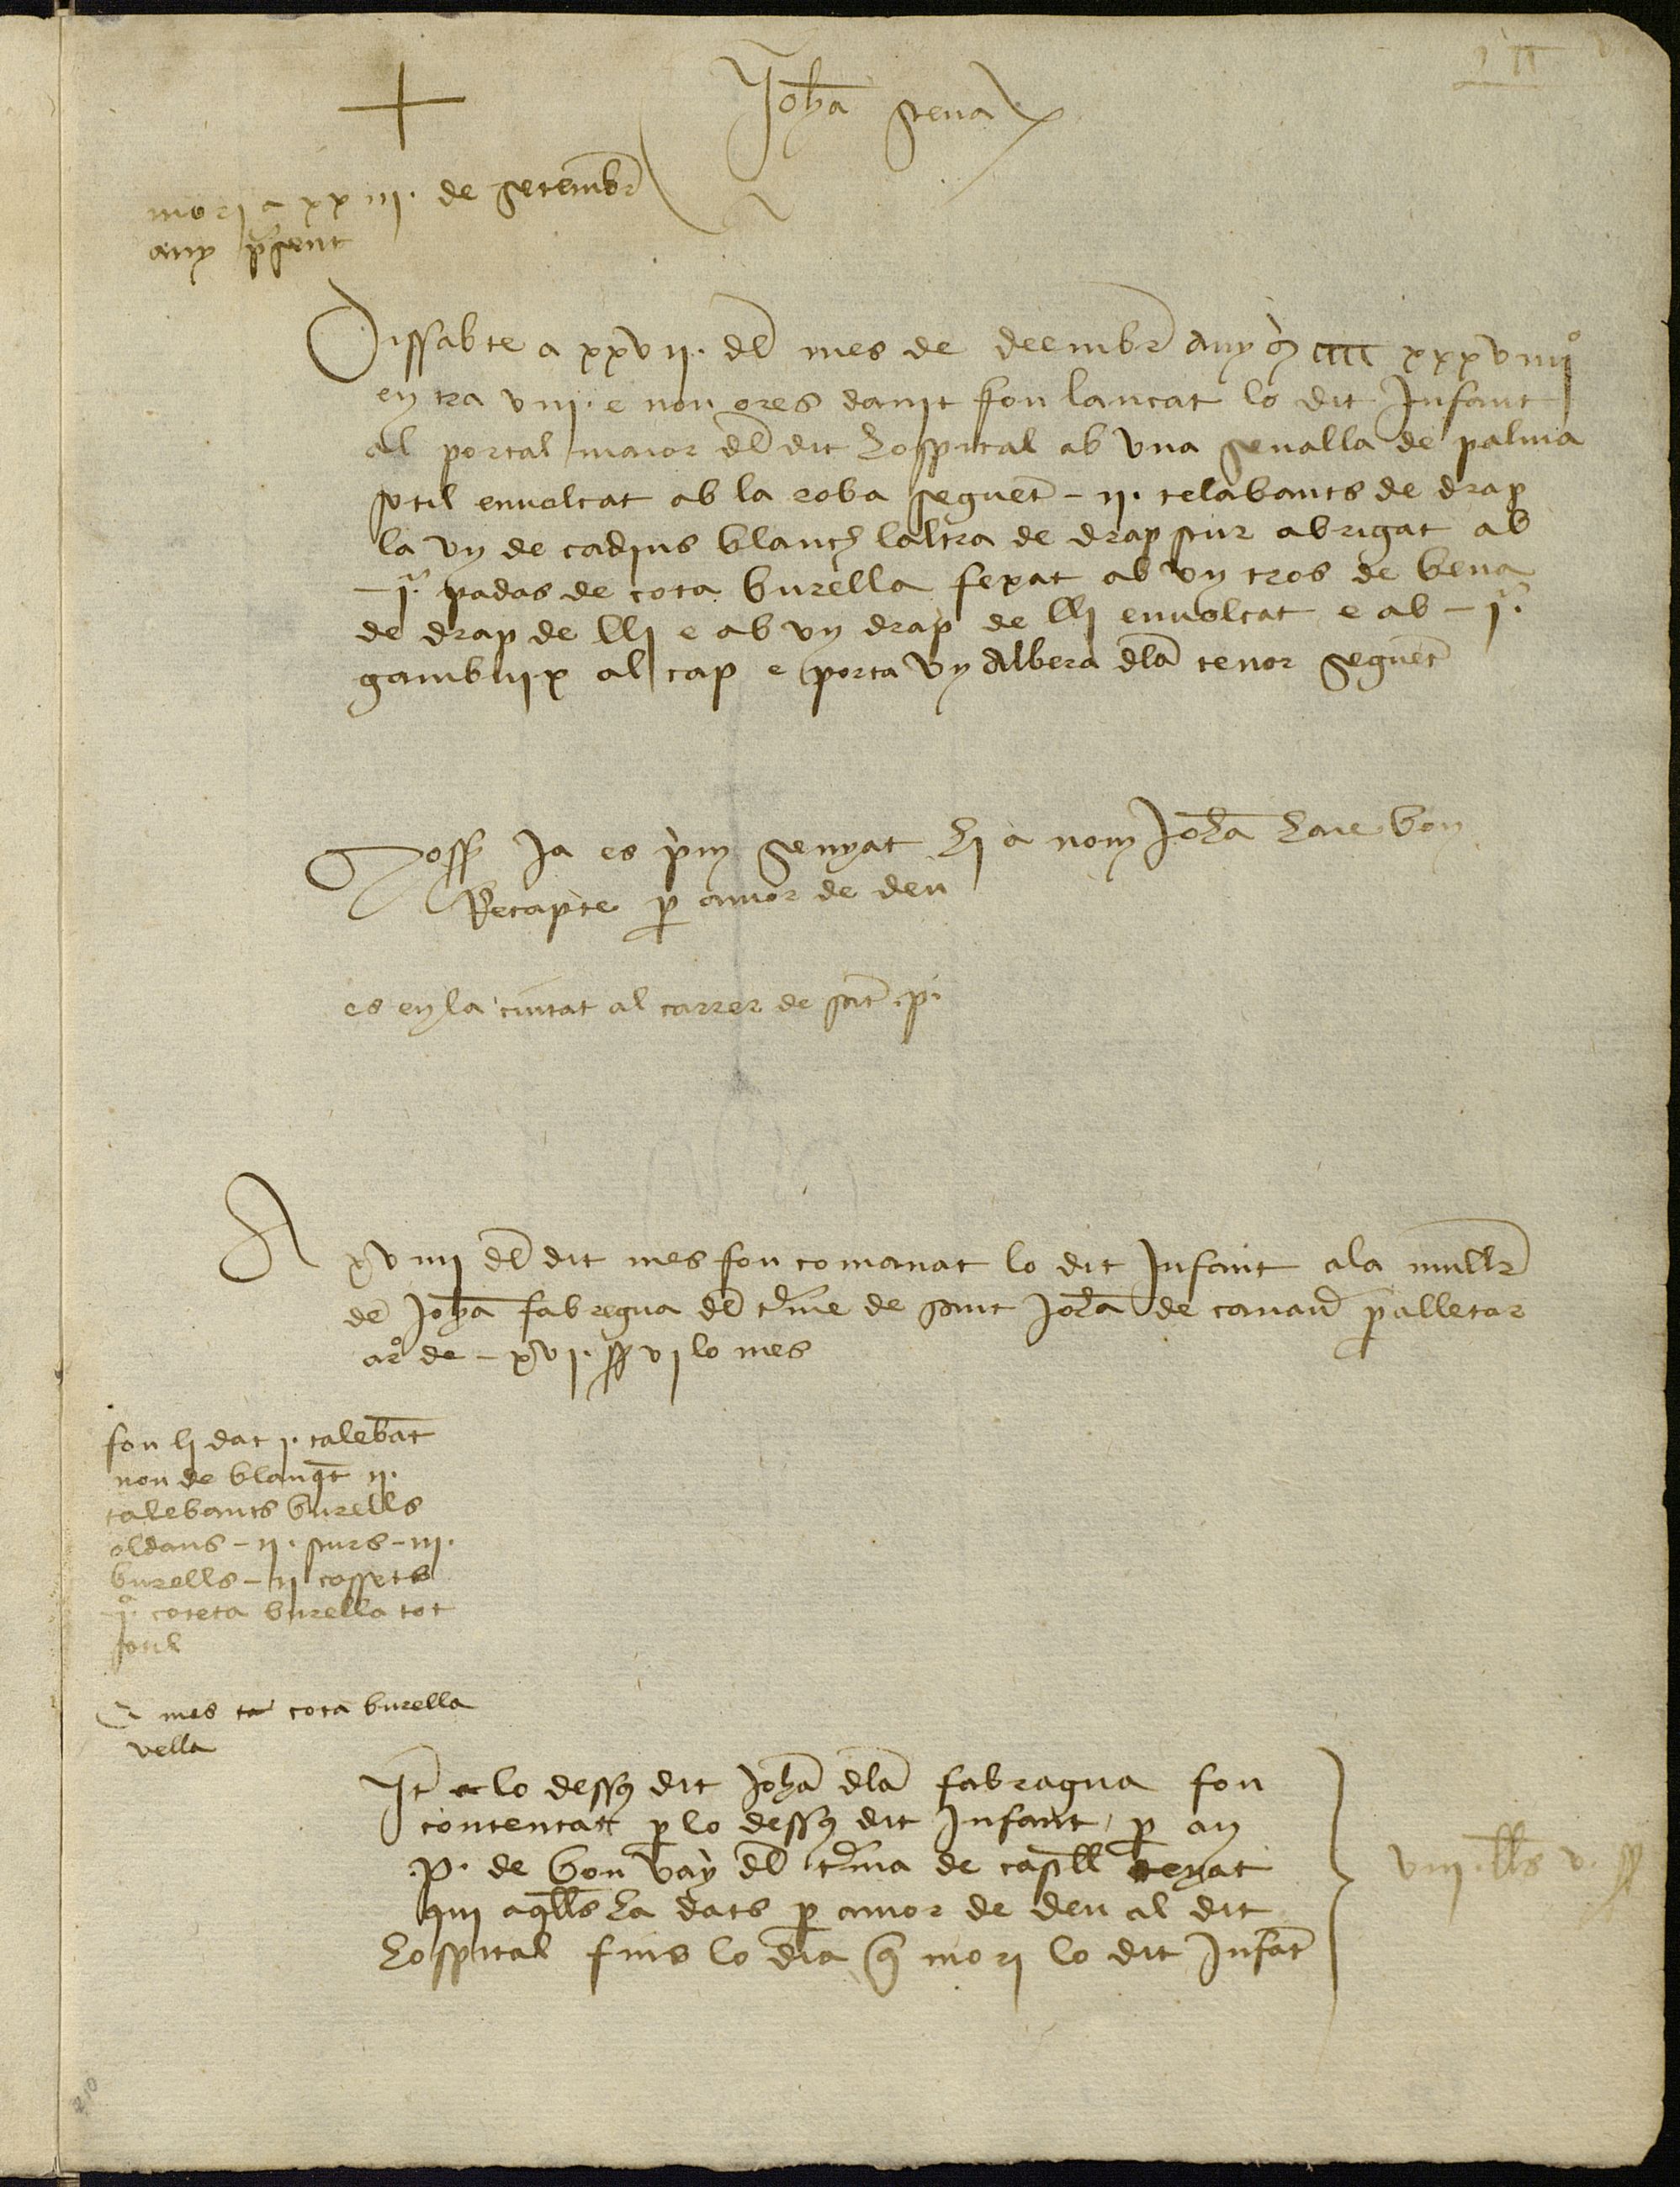 Joha Stena
mori a xxiii. de setembr
any psent
Dissabte a xxvii. del mes de deembr any m cccc xxxviiiiº
entra viii. e nou ores danit fou lancat lo dit Infant
al portal maior del dit hospital ab vna senalla de palma
sotil enuolcat ab la roba seguet - ii. telabants de drap
la vn de cadins blanch laltra de drap scur abrigat ab
- iª. padas de cota burella fexat ab vn tros de bena
de drap de lli e ab vn drap de lli enuolcat e ab - iª.
gambuix al cap e porta vn Albera dla tenor seguet
Joss Ja es pm senyat hi a nom Joha haie bon
Recapte p amor de deu
es en la ciutat al carrer de sat .p.
A xviiii del dit mes fou comanat lo dit Infant ala mullr
de Joha fabregua del tme de sant Joha de p alletar
arº de - xvi. ss vi lo mes
fou li dat i. talebat
nou de blanqt ii.
talebants burells
oldans - ii. scurs - iii.
burells - ii cossets
iª. coteta burella tot
fonl
E mes ta cota burella
vella
It lo dessus dit Joha dla fabragua fou
contentat p lo dessus dit Infant p an
.P. de bon vay del tma de castll tersat
qui aqlls ha dats p amor de deu al dit
hospital fins lo dia q mori lo dit Infat
viii. lls v. ss
210